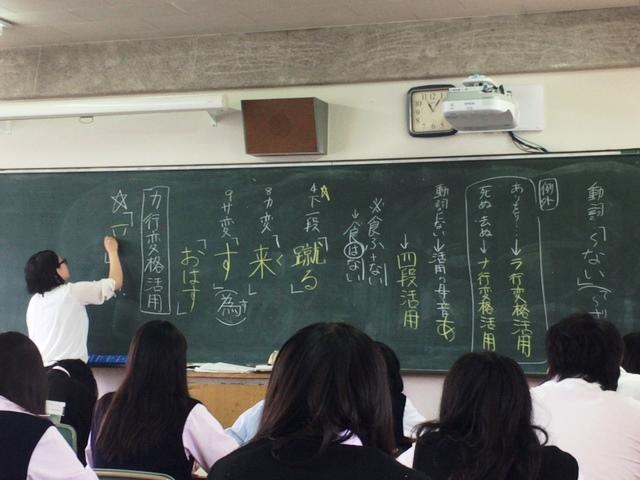 動詞「～ない」(～ず)
例外
あり… → ラ行変格活用
死ぬ 去ぬ → ナ行変格活用
動詞+ない → 活用の母音あ
→ 四段活用
※食ふ+ない
→食はない
4 下一段「蹴る」
8 カ変「来」く
9 サ変「す」(為)
「おはす」
カ行変格活用
☆「
EPSON